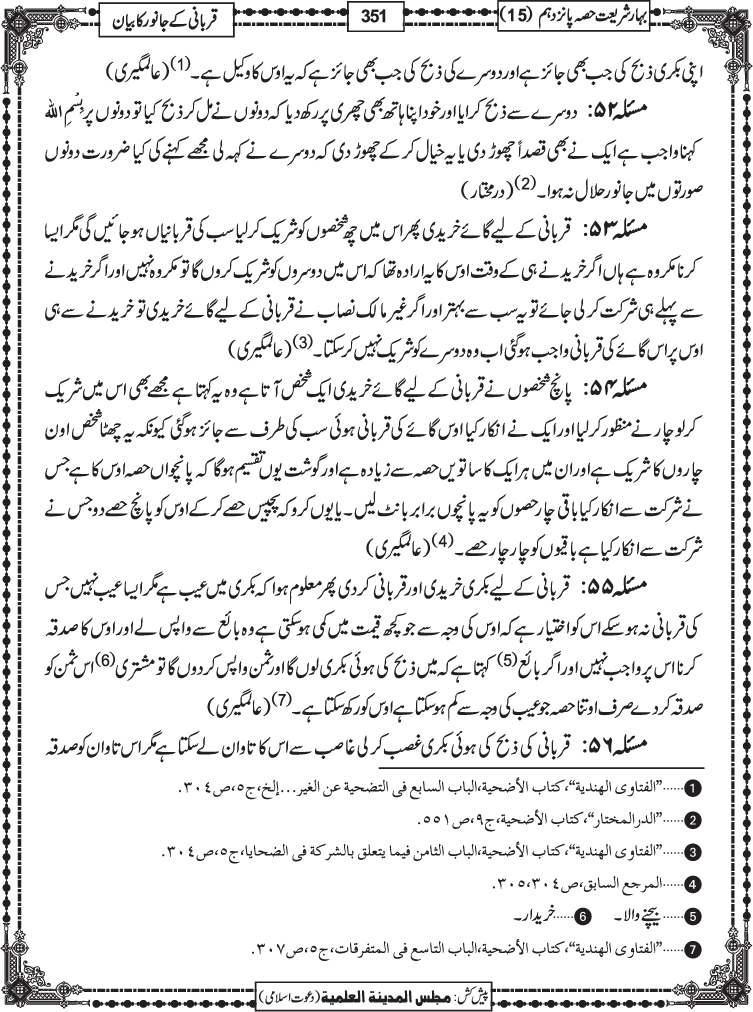 بہار شریعت حصہ پانزدہم (15)
351
قربانی کے جانور کا بیان
اپنی بکری ذبح کی جب بھی جائز ہے اور دوسرے کی ذبح کی جب بھی جائز ہے کہ یہ اوس کا وکیل ہے۔(1) (عالمگیری)
مسئلہ ۵۲: دوسرے سے ذبح کرایا اور خود اپنا ہاتھ بھی چھری پر رکھ دیا کہ دونوں نے مل کر ذبح کیا تو دونوں پر بِسْمِ اللہ
کہنا واجب ہے ایک نے بھی قصداً چھوڑ دی یا یہ خیال کر کے چھوڑ دی کہ دوسرے نے کہہ لی مجھے کہنے کی کیا ضرورت دونوں
صورتوں میں جانور حلال نہ ہوا۔(2) (درمختار)
مسئلہ ۵۳: قربانی کے لیے گائے خریدی پھر اس میں چھ شخصوں کو شریک کر لیا سب کی قربانیاں ہو جائیں گی مگر ایسا
کرنا مکروہ ہے ہاں اگر خریدنے ہی کے وقت اوس کا یہ ارادہ تھا کہ اس میں دوسروں کو شریک کروں گا تو مکروہ نہیں اور اگر خریدنے
سے پہلے ہی شرکت کر لی جائے تو یہ سب سے بہتر اور اگر غیر مالک نصاب نے قربانی کے لیے گائے خریدی تو خریدنے سے ہی
اوس پر اس گائے کی قربانی واجب ہوگئی اب وہ دوسرے کو شریک نہیں کر سکتا۔(3) (عالمگیری)
مسئلہ ۵۴: پانچ شخصوں نے قربانی کے لیے گائے خریدی ایک شخص آتا ہے وہ یہ کہتا ہے مجھے بھی اس میں شریک
کر لو چار نے منظور کر لیا اور ایک نے انکار کیا اوس گائے کی قربانی ہوئی سب کی طرف سے جائز ہوگئی کیونکہ یہ چھٹا شخص اون
چاروں کا شریک ہے اور ان میں ہر ایک کا ساتویں حصہ سے زیادہ ہے اور گوشت یوں تقسیم ہوگا کہ پانچواں حصہ اوس کا ہے جس
نے شرکت سے انکار کیا باقی چار حصوں کو یہ پانچوں برابر بانٹ لیں۔ یا یوں کرو کہ پچیس حصے کر کے اوس کو پانچ حصے دو جس نے
شرکت سے انکار کیا ہے باقیوں کو چار چار حصے۔(4) (عالمگیری)
مسئلہ ۵۵: قربانی کے لیے بکری خریدی اور قربانی کر دی پھر معلوم ہوا کہ بکری میں عیب ہے مگر ایسا عیب نہیں جس
کی قربانی نہ ہو سکے اس کو اختیار ہے کہ اوس کی وجہ سے جو کچھ قیمت میں کمی ہو سکتی ہے وہ بائع سے واپس لے اور اوس کا صدقہ
کرنا اس پر واجب نہیں اور اگر بائع(5) کہتا ہے کہ میں ذبح کی ہوئی بکری لوں گا اور ثمن واپس کر دوں گا تو مشتری(6) اس ثمن کو
صدقہ کر دے صرف اوتنا حصہ جو عیب کی وجہ سے کم ہو سکتا ہے اوس کو رکھ سکتا ہے۔(7) (عالمگیری)
مسئلہ ۵۶: قربانی کی ذبح کی ہوئی بکری غصب کر لی غاصب سے اس کا تاوان لے سکتا ہے مگر اس تاوان کو صدقہ
1 ......"الفتاوی الهندية"، کتاب الأضحية، الباب السابع فی التضحية عن الغير...إلخ، ج٥، ص٣٠٤.
2 ......"الدرالمختار"، کتاب الأضحية، ج٩، ص٥٥١.
3 ......"الفتاوی الهندية"، کتاب الأضحية، الباب الثامن فيما يتعلق بالشركة فی الضحايا، ج٥، ص٣٠٤.
4 ......المرجع السابق، ص٣٠٤، ٣٠٥.
5 ......بیچنے والا۔ 6 ......خریدار۔
7 ......"الفتاوی الهندية"، کتاب الأضحية، الباب التاسع فی المتفرقات، ج٥، ص٣٠٧.
پیش کش: مجلس المدینة العلمیة (دعوت اسلامی)